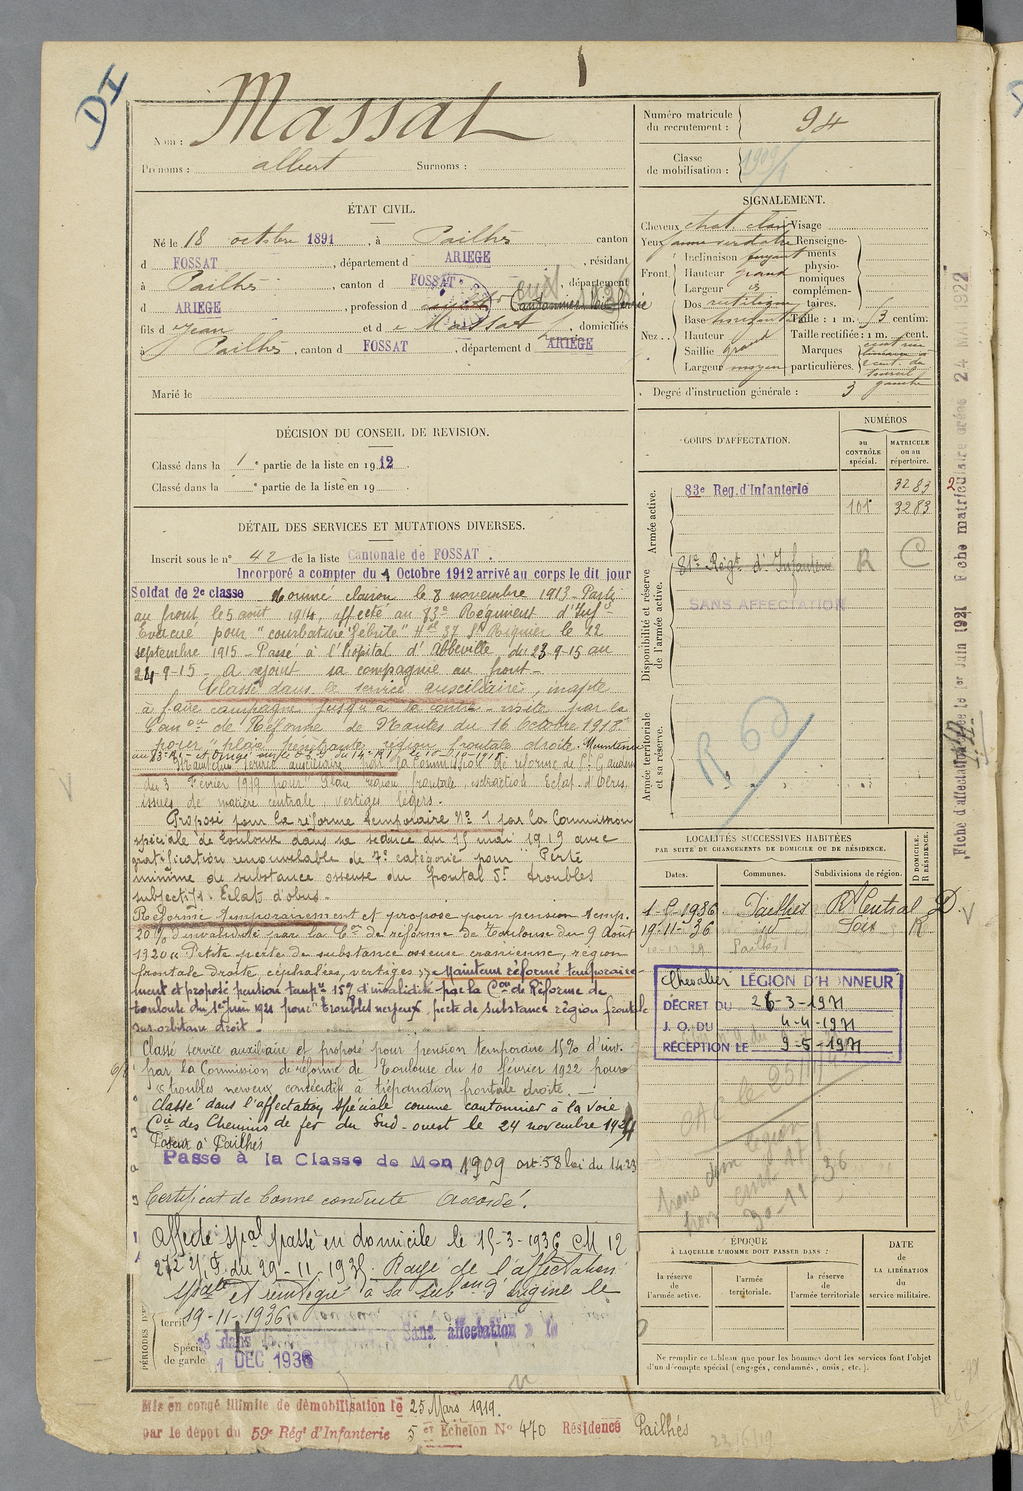 DI
Nom : Massat
Prénoms : albert Surnoms :
ÉTAT CIVIL.
Né le 18 octobre 1891, à Pailhès canton
d FOSSAT, département d ARIEGE, résidant
à Pailhès, canton d FOSSAT, département
d ARIEGE, profession d Cantonnier
fils d Jean et d e Massat, domiciliés
à Pailhès, canton d FOSSAT, département d ARIEGE
Marié le
DÉCISION DU CONSEIL DE REVISION.
Classé dans la 1e partie de la liste en 1912.
Classé dans la e partie de la liste en 19
DÉTAIL DES SERVICES ET MUTATIONS DIVERSES.
Inscrit sous le n° 42 de la liste Cantonale de FOSSAT.
Incorporé a compter du 1 Octobre 1912 arrivé au corps le dit jour
Soldat de 2e classe Nommé clairon le 8 novembre 1913. Parti
au front le 5 août 1914, affecté au 83e Régiment d'Infie
Evacué pour "courbature fébrile" Hal 37 St Riquier le 22
septembre 1915. Passé à l'hôpital d'Abbeville du 23-9-15 au
24-9-15. A rejoint sa compagnie au front.
Classé dans le service auxiliaire, inapte
à faire campagne jusqu'à la contre-visite par la
Conon de Réforme de Nantes du 16 Octobre 1918
pour plaie pénétrante région frontale droite. Maintenu
Maintenu service auxiliaire par la Commission de réforme de St Gaudens
du 3 Février 1919 pour plaie région frontale extraction Eclat d'Obus,
issues de matière centrale, vertiges légers.
Proposé pour la réforme temporaire N° 1 par la Commission
spéciale de Toulouse dans sa séance du 15 mai 1919 avec
gratification renouvelable de 7e catégorie pour Perte
minime de substance osseuse du frontal Dr troubles
subjectifs. Eclat d'obus.
Réformé temporairement et proposé pour pension temp.
20 % d'invalidité par la Con de réforme de Toulouse du 9 août
1920 Petite perte de substance osseuse cranienne, région
frontale droite, céphalées, vertiges Maintenu réformé temporaire-
ment et proposé pension tempre 15% d'invalidité par la Con de Réforme de
Toulouse du 1er juin 1921 pour "troubles nerveux, perte de substance région frontale
sus orbitaire droit.
Classé service auxiliaire et proposé pour pension temporaire 15% d'inv.
par la Commission de réforme de Toulouse du 10 février 1922 pour
"troubles nerveux consécutifs à trépanation frontale droite.
Classé dans l'affectation spéciale comme cantonnier à la voie
Cie des Chemins de fer du Sud-ouest le 24 novembre 1924
Passé à Pailhès
Passé à la Classe de Mon 1909 art. 58 loi du 1-4-23
Certificat de bonne conduite Accordé.
Affecté spal passé en domicile le 15-3-1936 M 12
du 29-11-1935. Rayé de l'affectation
spale et réintégré à la subon d'origine le
19-11-1936
PÉRIODES D'EX
territ
Spéci
de garde
Sans affectation
1 DEC 1936
Mis en congé illimité de démobilisation le 25 Mars 1919.
par le dépot du 59e Régt d'Infanterie 5 er Echelon N° 470 Résidence Pailhès
Numéro matricule
du recrutement : 94
Classe
de mobilisation : 1909
SIGNALEMENT.
Cheveux chat. clair Visage
Yeux jaune verdâtre Renseigne-
Front. Inclinaison fuyant ments
Hauteur grand physio-
nomiques
Largeur complémen-
Nez. Dos rectiligne taires.
Base horizontale Taille : 1 m. 53 centim.
Hauteur Taille rectifiée : 1 m. cent.
Saillie grand Marques
Largeur moyen particulières.
gauche
Degré d'instruction générale : 3
CORPS D'AFFECTATION.
NUMÉROS
au CONTRÔLE spécial.
MATRICULE ou au répertoire.
Armée active.
83e Reg. d'Infanterie 3283
101 3283
Disponibilité et réserve de l'armée active.
81e Régt d'Infanterie R C
SANS AFFECTATION
Armée territoriale et sa réserve.
R 60
LOCALITÉS SUCCESSIVES HABITÉES
PAR SUITE DE CHANGEMENTS DE DOMICILE OU DE RÉSIDENCE.
Dates. Communes. Subdivisions de région. D DOMICILE. R RÉSIDENCE.
1936 Pailhès D
19-11-36 id Foix R
Pailhès
Chevalier LÉGION D'HONNEUR
DÉCRET DU 26-3-1971
J. O. DU 4-4-1971
RÉCEPTION LE 9-5-1971
30-11-36
ÉPOQUE
À LAQUELLE L'HOMME DOIT PASSER DANS :
la réserve de l'armée active.
l'armée territoriale.
la réserve de l'armée territoriale
DATE
de
LA LIBÉRATION
du
service militaire.
Ne remplir ce tableau que pour les hommes dont les services font l'objet
d'un décompte spécial (engagés, condamnés, omis, etc.).
Fiche d'affectation créée le 1er Juin 1921 Fiche matriculaire créée 24 MAI 1922